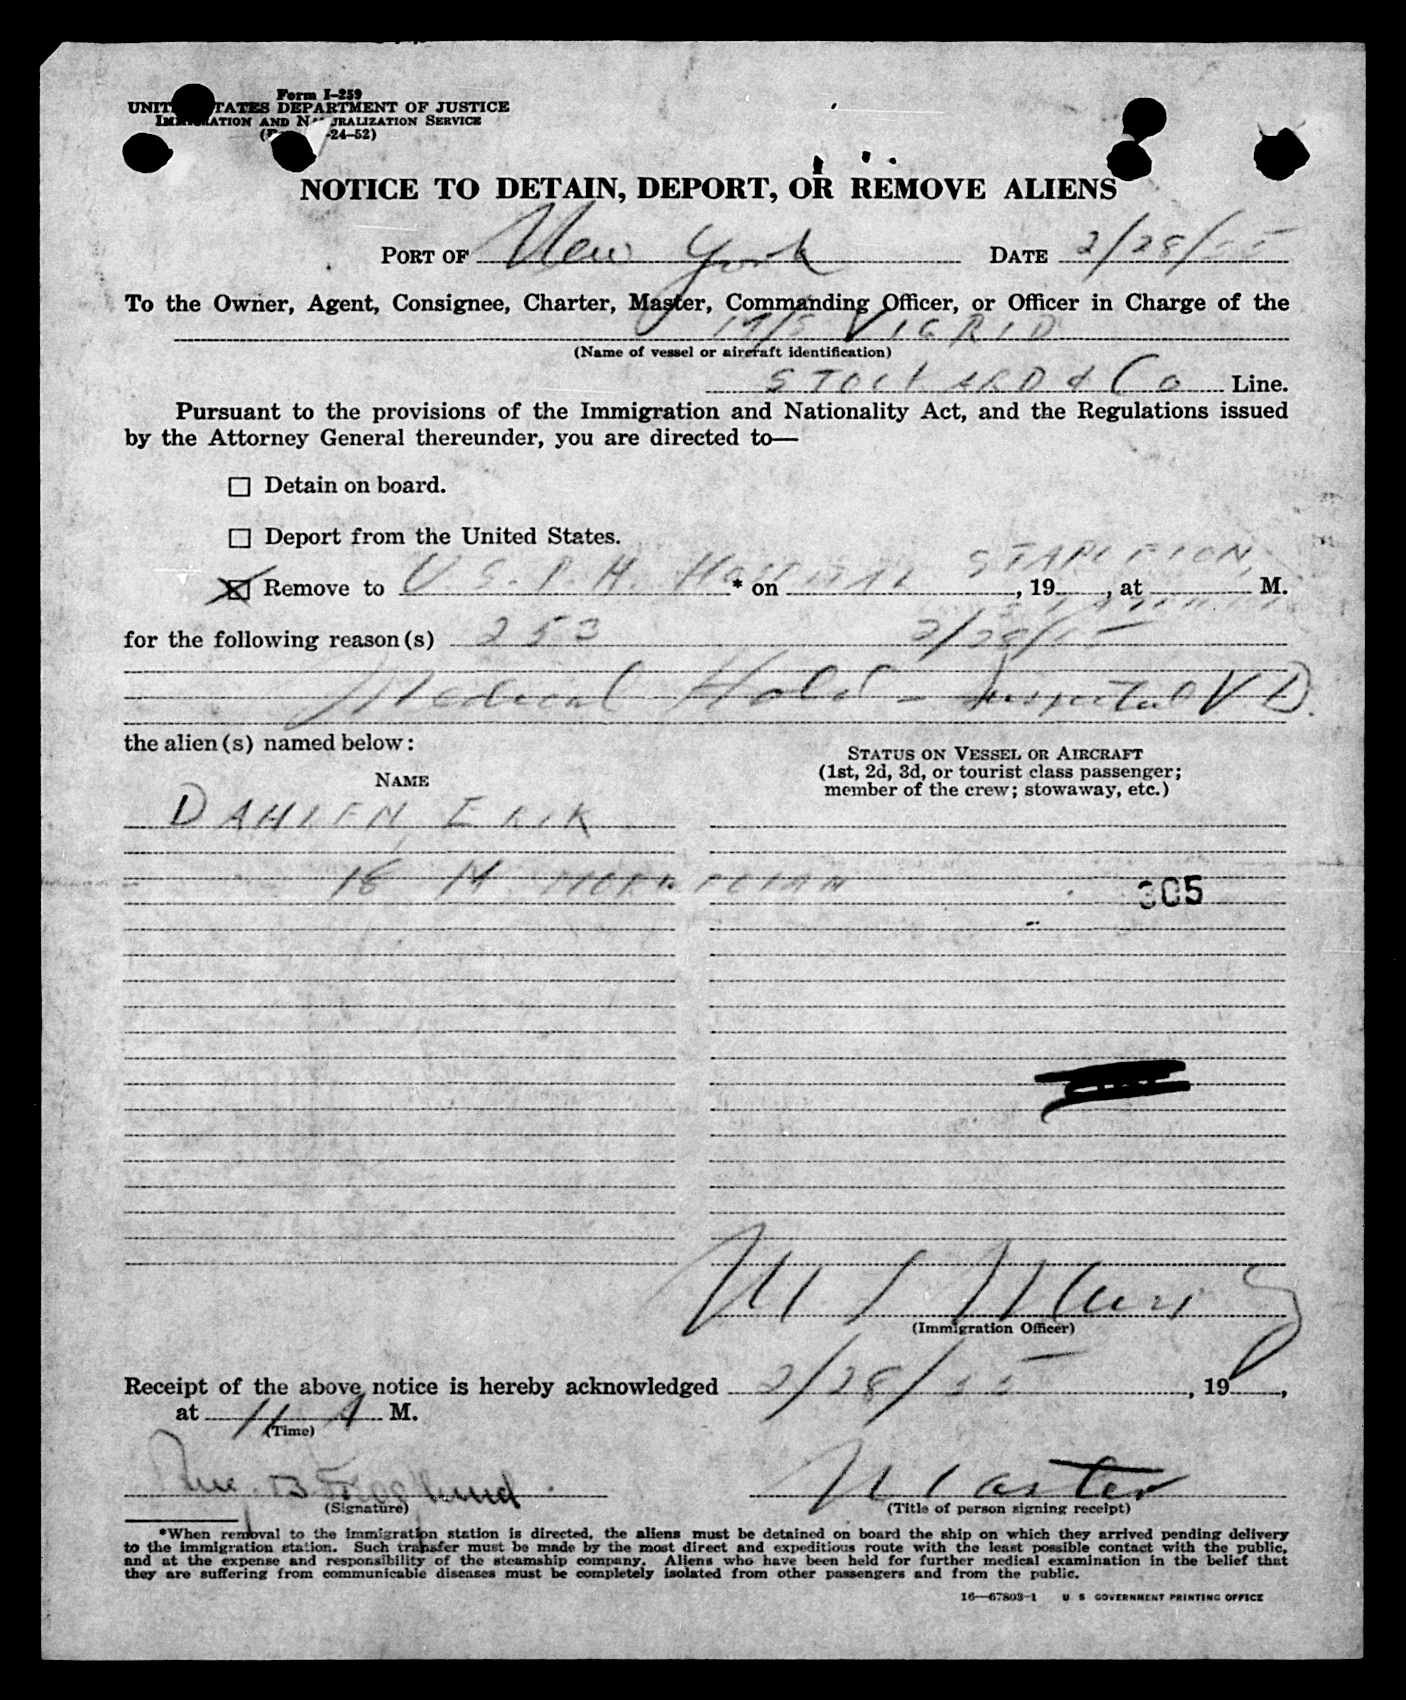 Form I-259
UNITED STATES DEPARTMENT OF JUSTICE
IMMIGRATION AND NATURALIZATION SERVICE
-24-52)
NOTICE TO DETAIN, DEPORT, OR REMOVE ALIENS
PORT OF New York DATE 2/28/55
To the Owner, Agent, Consignee, Charter, Master, Commanding Officer, or Officer in Charge of the
M/S VIGRID
(Name of vessel or aircraft identification)
STOCKARD & Co Line.
Pursuant to the provisions of the Immigration and Nationality Act, and the Regulations issued
by the Attorney General thereunder, you are directed to—
☐ Detain on board.
☐ Deport from the United States.
☒ Remove to U.S.P.H. HOSPITAL STAPLETON, * on , 19 , at M.
for the following reason(s) 253 2/28/55
Medical Hold - Suspected VD.
the alien(s) named below:
NAME
STATUS ON VESSEL OR AIRCRAFT
(1st, 2d, 3d, or tourist class passenger;
member of the crew; stowaway, etc.)
DAHLEN, ERIK
18 M NORWEGIAN
305
(Immigration Officer)
Receipt of the above notice is hereby acknowledged 2/28/55, 19 ,
at 11 A M.
(Time)
Master
(Signature)
(Title of person signing receipt)
*When removal to the immigration station is directed, the aliens must be detained on board the ship on which they arrived pending delivery
to the immigration station. Such transfer must be made by the most direct and expeditious route with the least possible contact with the public,
and at the expense and responsibility of the steamship company. Aliens who have been held for further medical examination in the belief that
they are suffering from communicable diseases must be completely isolated from other passengers and from the public.
16—67803-1 U S GOVERNMENT PRINTING OFFICE